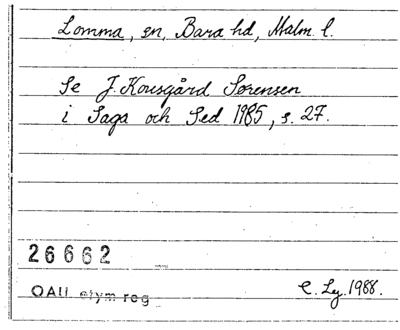 Lomma, sn, Bara hd, Malm. l.
Se J. Kousgård Sørensen
i Saga och Sed 1985, s. 27.
26662
OAU etym reg
C. Ly. 1988.